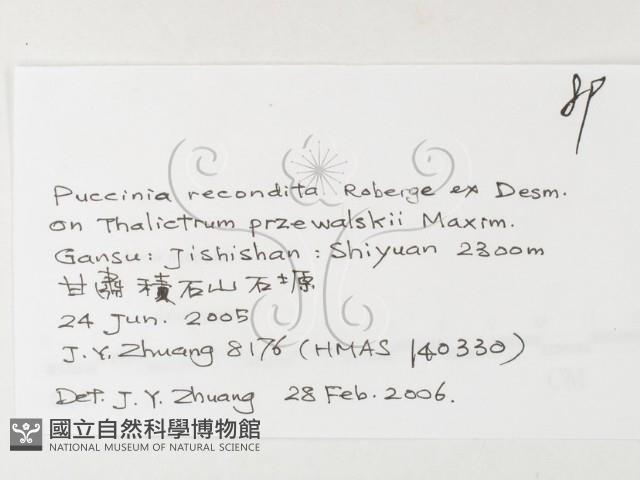 Puccinia recondita Roberge ex Desm.
on Thalictrum przewalskii Maxim.
Gansu: Jishishan: Shiyuan 2300m
甘肅積石山石塬
24 Jun. 2005
J.Y. Zhuang 8176 (HMAS 140330)
Det. J.Y. Zhuang 28 Feb. 2006.
國立自然科學博物館
NATIONAL MUSEUM OF NATURAL SCIENCE